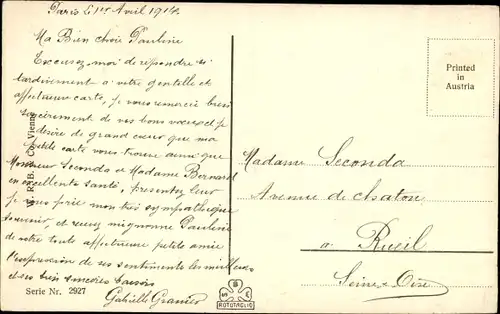 Paris le 1er Avril 1914.
Ma Bien chère Pauline
Excusez-moi de répondre si
tardivement à votre gentille et
affectueuse carte, je vous remercie bien
sincèrement de vos bons voeux et je
désire de grand coeur que ma
petite carte vous trouve ainsi que
Monsieur Seconda et Madame Bernard
en excellente santé, présentez leur
je vous prie mon très sympathique
souvenir, et recevez mignonne Pauline
de votre toute affectueuse petite amie
l'expression de ses sentiments les meilleurs
et ses très sincères baisers
Gabrielle Granier
Serie Nr. 2927
ROTOTAGLIO
Printed
in
Austria
Madame Seconda
Avenue de chatou
à Rueil
Seine & Oise